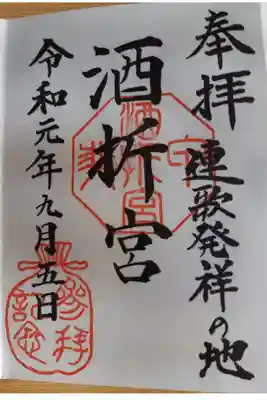 奉拝
連歌発祥の地
酒折宮
令和元年九月五日
酒折宮
参拝記念